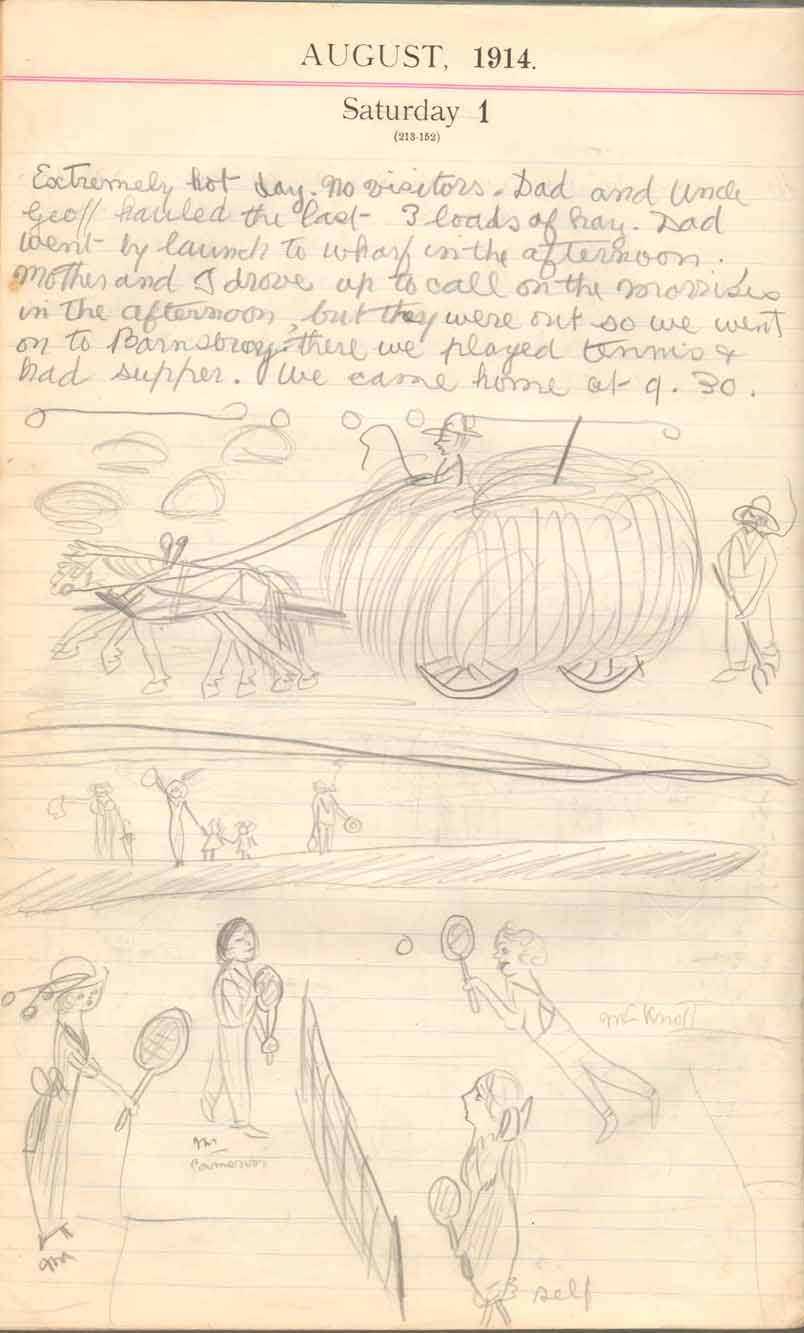 AUGUST, 1914.
Saturday 1
(213-152)
Extremely hot day. No visitors. Dad and Uncle
Geoff hauled the last 3 loads of hay. Dad
went by launch to wharf in the afternoon.
Mother and I drove up to call on the Morrises
in the afternoon, but they were out so we went
on to Barnsbury: there we played tennis &
had supper. We came home at 9.30.
Mr Knoll
Mr
self